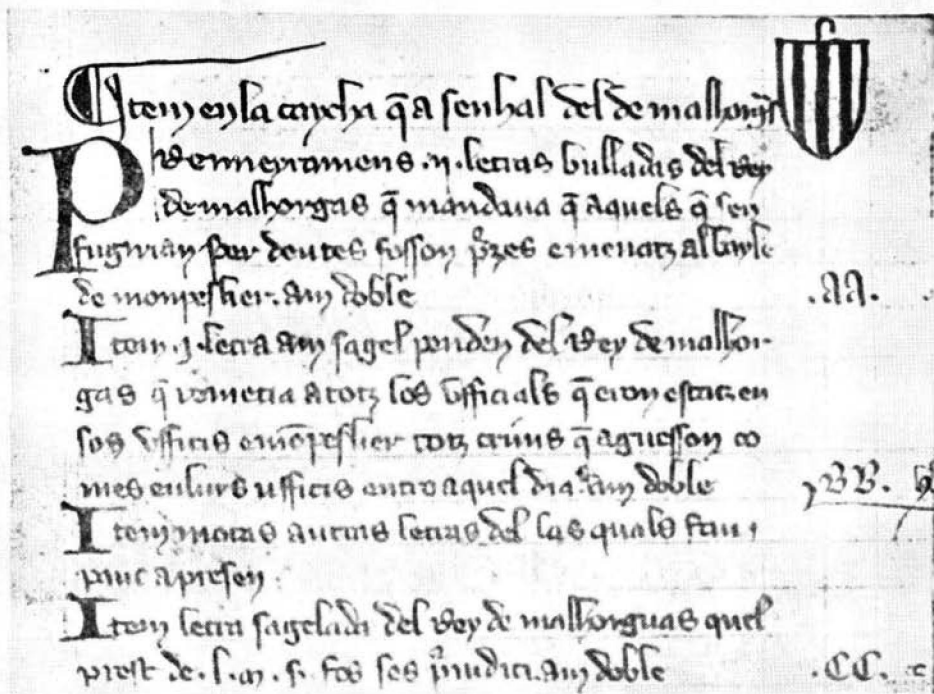 Item en la caycha q̄ a senhal del de malhorgas
Premieyramens .ii. letras bulladas del rey
de malhorgas q̄ mandava q̄ aquels q̄ sen
fugirian per deutes fosson p̄zes e menatz al bayle
de monpeslier. am doble .AA.
Item .j. letra am sagel penden del Rey de malhor-
gas q̄ remetia a totz los ufficials q̄ eron estatz en
sos ufficis e mo̅peslier totz crims q̄ aguesson co
mes en lurs ufficis entro aquel dia. am doble .BB.
Item motas autras letras del las quals fan
pauc a presen.
Item letra sagelada del Rey de malhorguas quel
prest de .l. m. s. fos ses p̄iudici. am doble .CC.